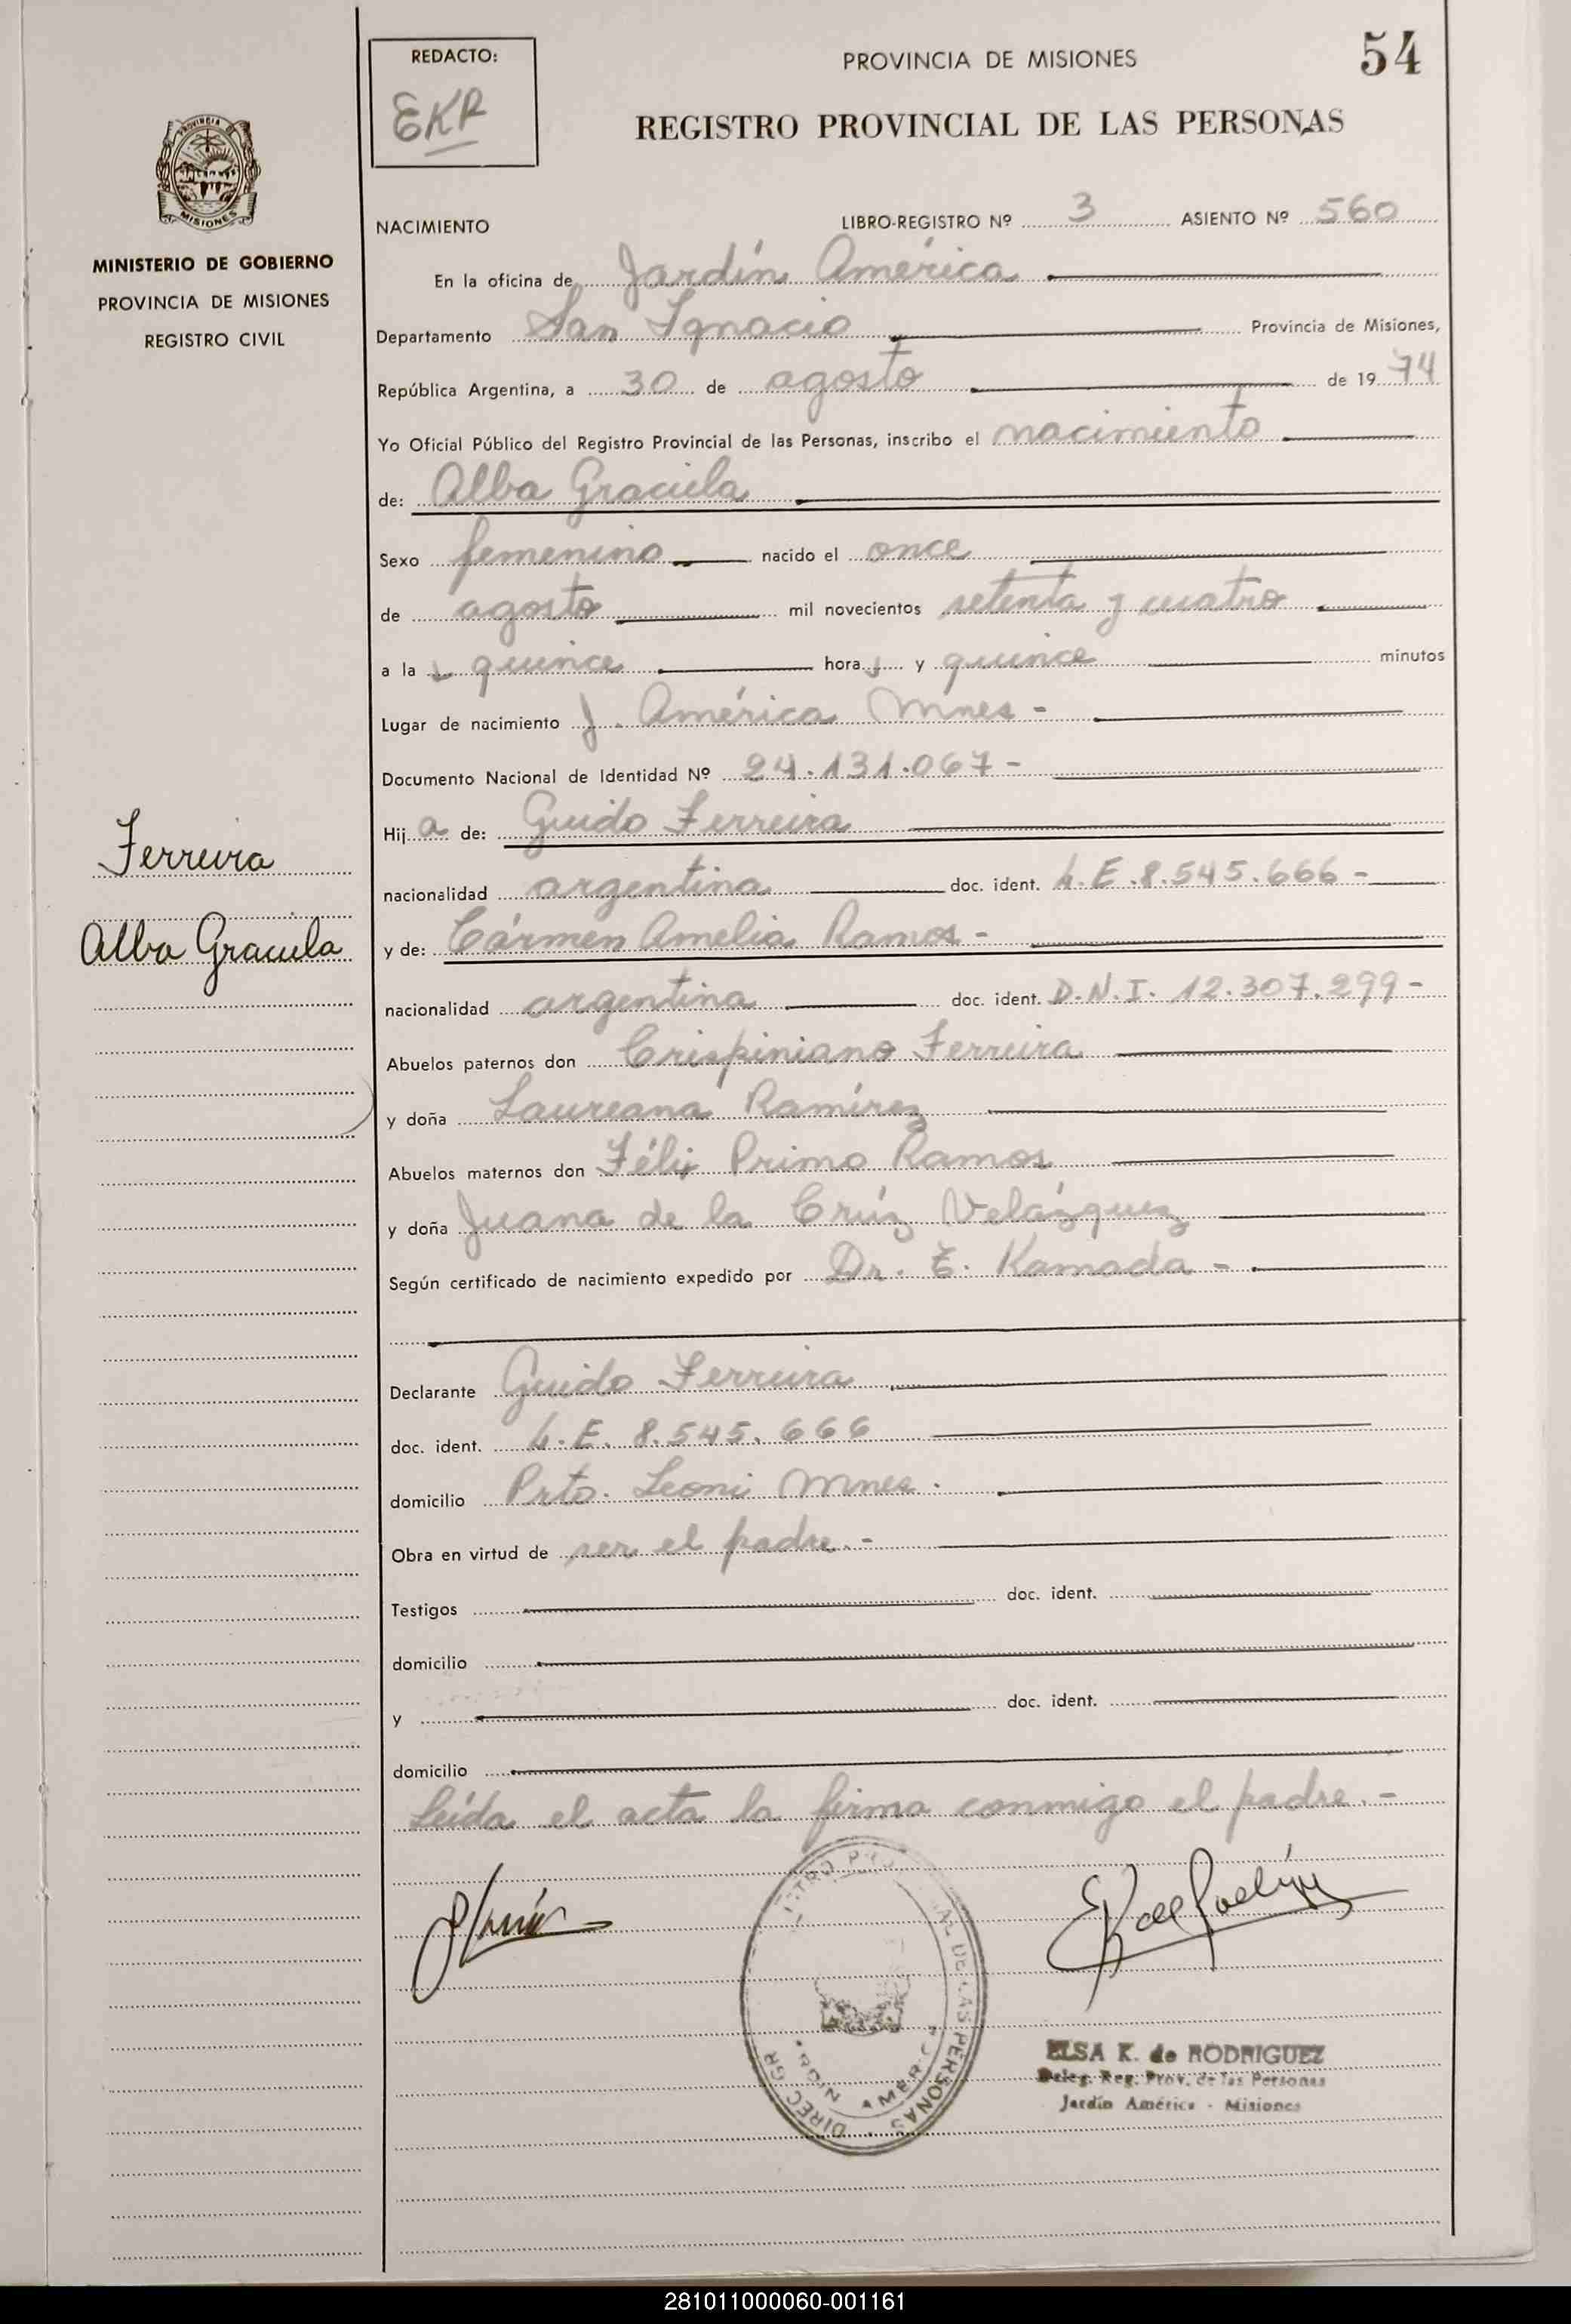 REDACTO:
EKR
PROVINCIA DE MISIONES
54
REGISTRO PROVINCIAL DE LAS PERSONAS
MISIONES
MINISTERIO DE GOBIERNO
PROVINCIA DE MISIONES
REGISTRO CIVIL
NACIMIENTO LIBRO-REGISTRO Nº 3 ASIENTO Nº 560
En la oficina de Jardín América
Departamento San Ignacio Provincia de Misiones,
República Argentina, a 30 de agosto de 19 74
Yo Oficial Público del Registro Provincial de las Personas, inscribo el nacimiento
de: Alba Graciela
Sexo femenino nacido el once
de agosto mil novecientos setenta y cuatro
a la s quince hora s y quince minutos
Lugar de nacimiento J. América Mnes -
Documento Nacional de Identidad Nº 24.131.067 -
Hij a de: Guido Ferreira
nacionalidad argentina doc. ident. L.E. 8.545.666 -
y de: Cármen Amelia Ramos -
nacionalidad argentina doc. ident. D.N.I. 12.307.299 -
Abuelos paternos don Crispiniano Ferreira
y doña Laureana Ramírez
Abuelos maternos don Félix Primo Ramos
y doña Juana de la Crúz Velázquez
Según certificado de nacimiento expedido por Dr. E. Kamada -
Declarante Guido Ferreira
doc. ident. L.E. 8.545.666
domicilio Prto. Leoni Mnes.
Obra en virtud de ser el padre. -
Testigos doc. ident.
domicilio
y doc. ident.
domicilio
Leída el acta la firma conmigo el padre. -
Ferreira
Alba Graciela
DE LAS PERSONAS
ELSA K. de RODRIGUEZ
Deleg. Reg. Prov. de las Personas
Jardín América - Misiones
281011000060-001161